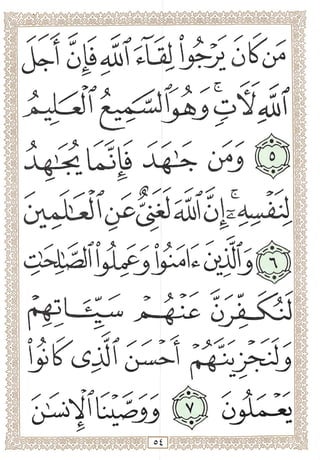 مَن كَانَ يَرْجُوا۟ لِقَآءَ ٱللَّهِ فَإِنَّ أَجَلَ
ٱللَّهِ لَـَٔاتٍ ۚ وَهُوَ ٱلسَّمِيعُ ٱلْعَلِيمُ
٥ وَمَن جَـٰهَدَ فَإِنَّمَا يُجَـٰهِدُ
لِنَفْسِهِۦٓ ۚ إِنَّ ٱللَّهَ لَغَنِىٌّ عَنِ ٱلْعَـٰلَمِينَ
٦ وَٱلَّذِينَ ءَامَنُوا۟ وَعَمِلُوا۟ ٱلصَّـٰلِحَـٰتِ
لَنُكَفِّرَنَّ عَنْهُمْ سَيِّـَٔاتِهِمْ
وَلَنَجْزِيَنَّهُمْ أَحْسَنَ ٱلَّذِى كَانُوا۟
يَعْمَلُونَ ٧ وَوَصَّيْنَا ٱلْإِنسَـٰنَ
٥٤